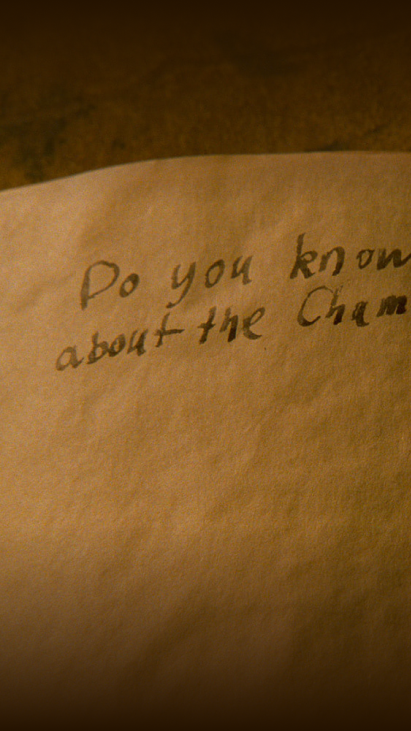 Do you know
about the Cham